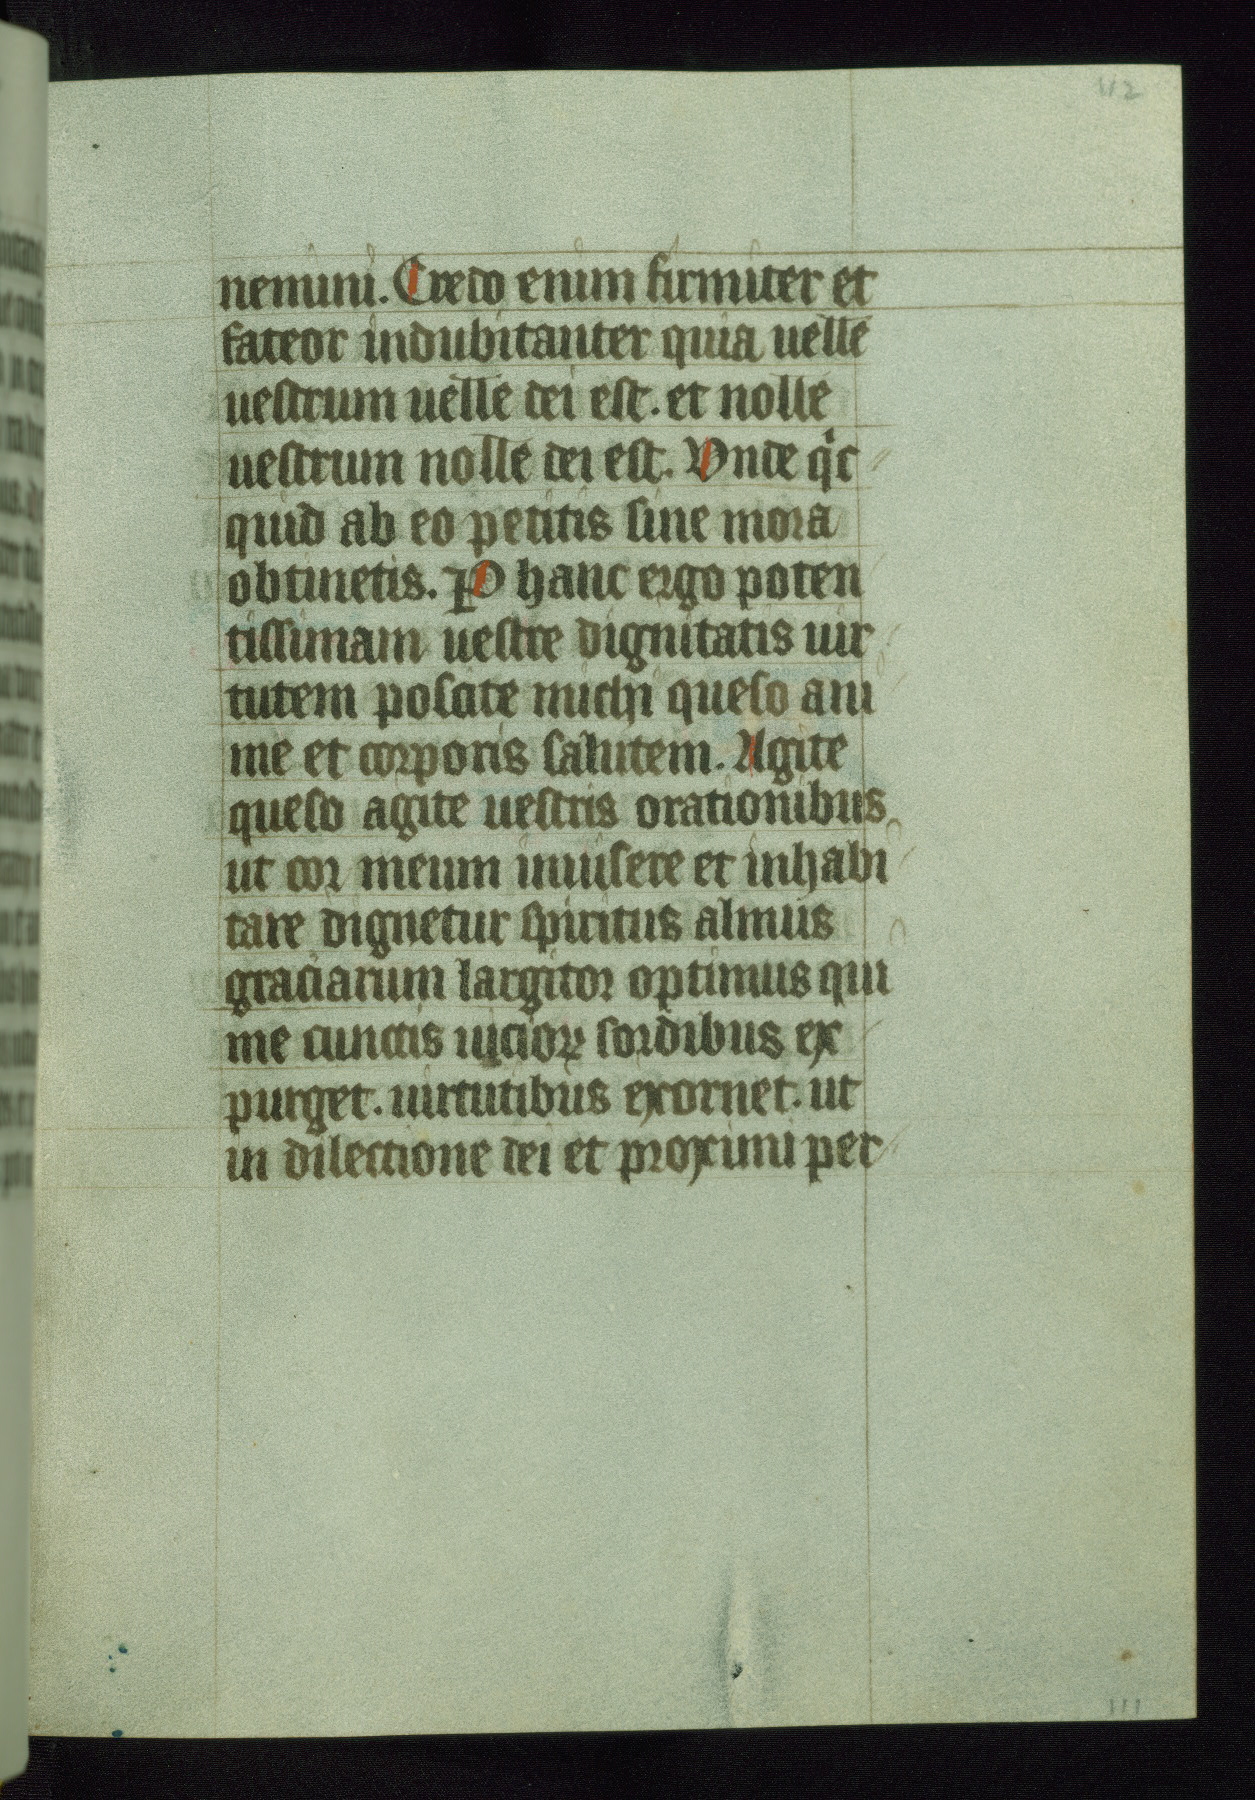 112
nemini. Credo enim firmiter et
fateor indubitanter quia uelle
uestrum uelle dei est. et nolle
uestrum nolle dei est. Vnde qͥc
quid ab eo petitis sine mora
obtinetis. P hanc ergo poten
tissimam uestre dignitatis uir
tutem poscite michi queso ani
me et corporis salutem. Agite
queso agite uestris orationibus
ut cor meum inuisere et inhabi
tare dignetur spiritus almus
graciarum largitor optimus qui
me cunctis uicioꝝ sordibus ex
purget. uirtutibus exornet. ut
in dilectione dei et proximi per
111